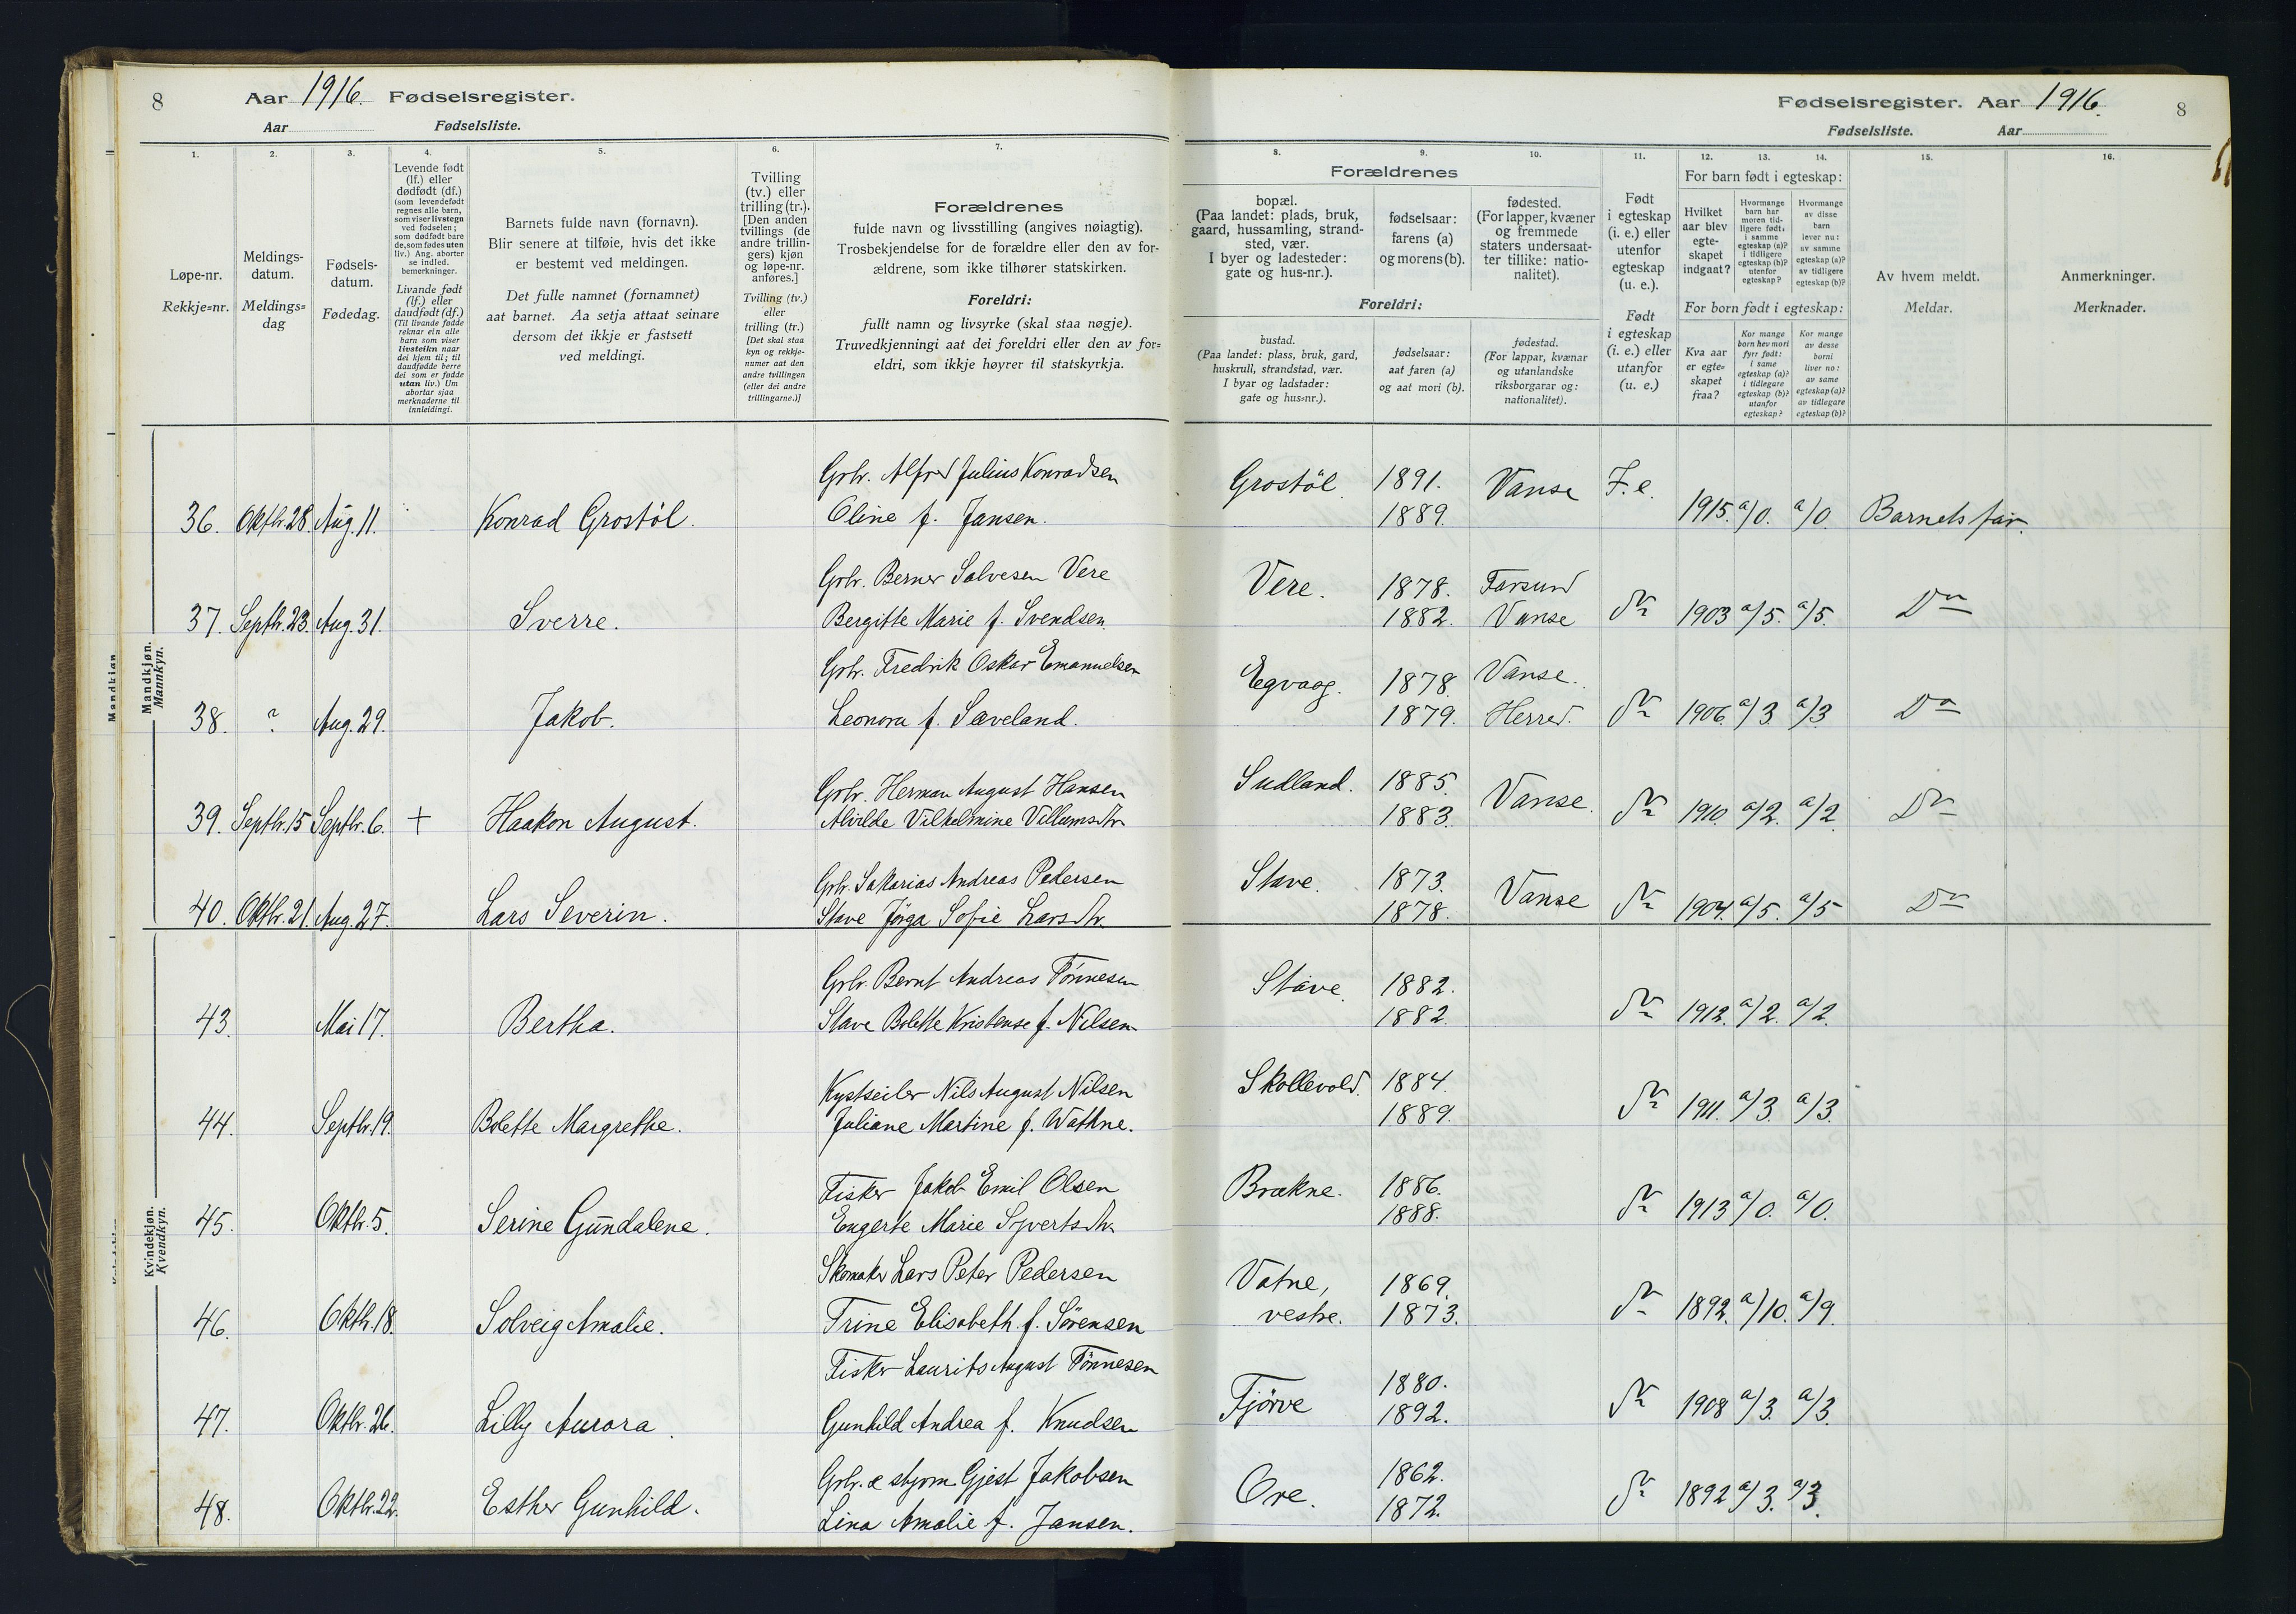 8 Aar 1916. Fødselsregister.
Aar Fødselsliste.
1. 2. 3. 4. 5. 6. 7.
Løpe-nr.
Rekkje=nr.
Meldings-
datum.
Meldings=
dag
Fødsels-
datum.
Fødedag.
Levende født
(lf.) eller
dødfødt (df.)
(som levendefødt
regnes alle barn,
som viser livstegn
ved fødselen;
som dødfødt bare
de, som fødes uten
liv.) Ang. aborter
se indled.
bemerkninger.
Livande født
(lf.) eller
daudfødt (df.)
(Til livande fødde
reknar ein alle
barn som viser
livsteikn naar
dei kjem til; til
daudfødde berre
dei som er fødde
utan liv.) Um
abortar sjaa
merknaderne til
innleidingi.
Barnets fulde navn (fornavn).
Blir senere at tilføie, hvis det ikke
er bestemt ved meldingen.
Det fulle namnet (fornamnet)
aat barnet. Aa setja attaat seinare
dersom det ikkje er fastsett
ved meldingi.
Tvilling
(tv.) eller
trilling (tr.).
[Den anden
tvillings (de
andre trillin-
gers) kjøn
og løpe-nr.
anføres.]
Tvilling (tv.)
eller
trilling (tr.)
[Det skal staa
kyn og rekkje-
numer aat den
andre tvillingen
(eller dei andre
trillingarne.)]
Forældrenes
fulde navn og livsstilling (angives nøiagtig).
Trosbekjendelse for de forældre eller den av for-
ældrene, som ikke tilhører statskirken.
Foreldri:
fullt namn og livsyrke (skal staa nøgje).
Truvedkjenningi aat dei foreldri eller den av for=
eldri, som ikkje høyrer til statskyrkja.
Mandkjøn.
Mannkyn.
Grbr. Alfred Julius Konradsen
36. Oktbr. 28. Aug. 11. Konrad Grostöl. Oline f. Jansen.
Grbr. Berner Salvesen Vere
37. Septbr. 23. Aug. 31. Sverre. Bergitte Marie f. Svendsen
Grbr. Fredrik Oskar Emanuelsen
38. ? Aug. 29. Jakob. Leonora f. Sæveland.
Grbr. Herman August Hansen
39. Septbr. 15 Septbr. 6. + Haakon August. Alvilde Vilhelmine Villumsdtr
Grbr. Sakarias Andreas Pedersen
40. Oktbr. 21. Aug. 27. Lars Severin. Stave Jörga Sofie Larsdtr.
Kvindekjøn.
Kvendkyn.
Grbr. Bernt Andreas Tönnesen
43. Mai 17. Bertha. Stave Bolette Kristense f. Nilsen
Kystseiler Nils August Nilsen
44. Septbr. 19. Bolette Margrethe. Juliane Martine f. Wathne.
Fisker Jakob Emil Olsen
45. Oktbr. 5. Serine Gundalene. Engerte Marie Syvertsdtr
Skomaker Lars Peter Pedersen
46. Oktbr. 18. Solveig Amalie. Trine Elisabeth f. Sörensen
Fisker Laurits August Tönnesen
47. Oktbr. 26. Lilly Aurora. Gunhild Andrea f. Knudsen
Grbr. & styrm. Gjest Jakobsen
48. Oktbr. 22. Esther Gunhild. Lina Amalie f. Jansen.
Fødselsregister. Aar 1916. 8
Fødselsliste. Aar
8. 9. 10. 11. 12. 13. 14. 15. 16.
Forældrenes
bopæl.
(Paa landet: plads, bruk,
gaard, hussamling, strand-
sted, vær.
I byer og ladesteder:
gate og hus-nr.).
fødselsaar:
farens (a)
og morens (b).
fødested.
(For lapper, kvæner
og fremmede
staters undersaat-
ter tillike: natio-
nalitet).
Foreldri:
bustad.
(Paa landet: plass, bruk, gard,
huskrull, strandstad, vær.
I byar og ladstader:
gate og hus=nr.).
fødselsaar:
aat faren (a)
og aat mori (b).
fødestad.
(For lappar, kvænar
og utanlandske
riksborgarar og:
nationalitet).
Født
i egteskap
(i. e.) eller
utenfor
egteskap
(u. e.).
Født
i egteskap
(i. e.) eller
utanfor
(u. e.)
For barn født i egteskap:
Hvilket
aar blev
egte-
skapet
indgaat?
Hvormange
barn har
moren tid-
ligere født:
i samme
egteskap (a)?
i tidligere
egteskap (b)?
utenfor
egteskap?
Hvormange
av disse
barn
lever nu:
av samme
egteskap (a)?
av tidligere
egteskap (b)?
For born født i egteskap:
Kva aar
er egte=
skapet
fraa?
Kor mange
born hev mori
fyrr født:
i same
egteskap (a)?
i tidlegare
egteskap (b)?
utanfor
egteskap?
Kor mange
av desse
borni
liver no:
av same
egteskap (a)?
av tidlegare
egteskap (b)?
Av hvem meldt.
Meldar.
Anmerkninger.
Merknader.
Grostöl. 1891. Vanse F. e.
1889. 1915. a/0. a/0. Barnets far.
Vere. 1878. Farsund
1882. Vanse do 1903 a/5. a/5. Do
Egvaag. 1878. Vanse.
1879. Herred. do 1906. a/3 a/3 Do
Sudland. 1885.
1883. Vanse. do 1910. a/2. a/2. Do
Stave. 1873.
1878. Vanse do 1904. a/5. a/5 Do
Stave. 1882.
1882. do 1912. a/2. a/2.
Skollevold. 1884.
1889. do 1911. a/3. a/3.
Brækne. 1886.
1888. do 1913 a/0. a/0.
Vatne, 1869.
vestre. 1873. do 1892. a/10. a/9.
Tjörve 1880.
1892. do 1908 a/3. a/3.
Ore. 1862.
1872. do 1892 a/3. a/3.